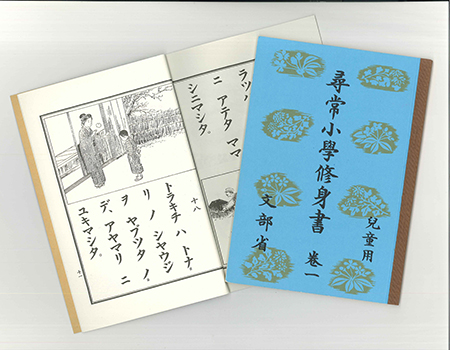 兒童用
尋常小學修身書 卷一
文部省
ラツパ
ニ アテタ ママ
シニマシタ。
十八
トラキチ ハ トナ
リ ノ シヤウジ
ヲ ヤブツタ ノ
デ、アヤマリ ニ
ユキマシタ。